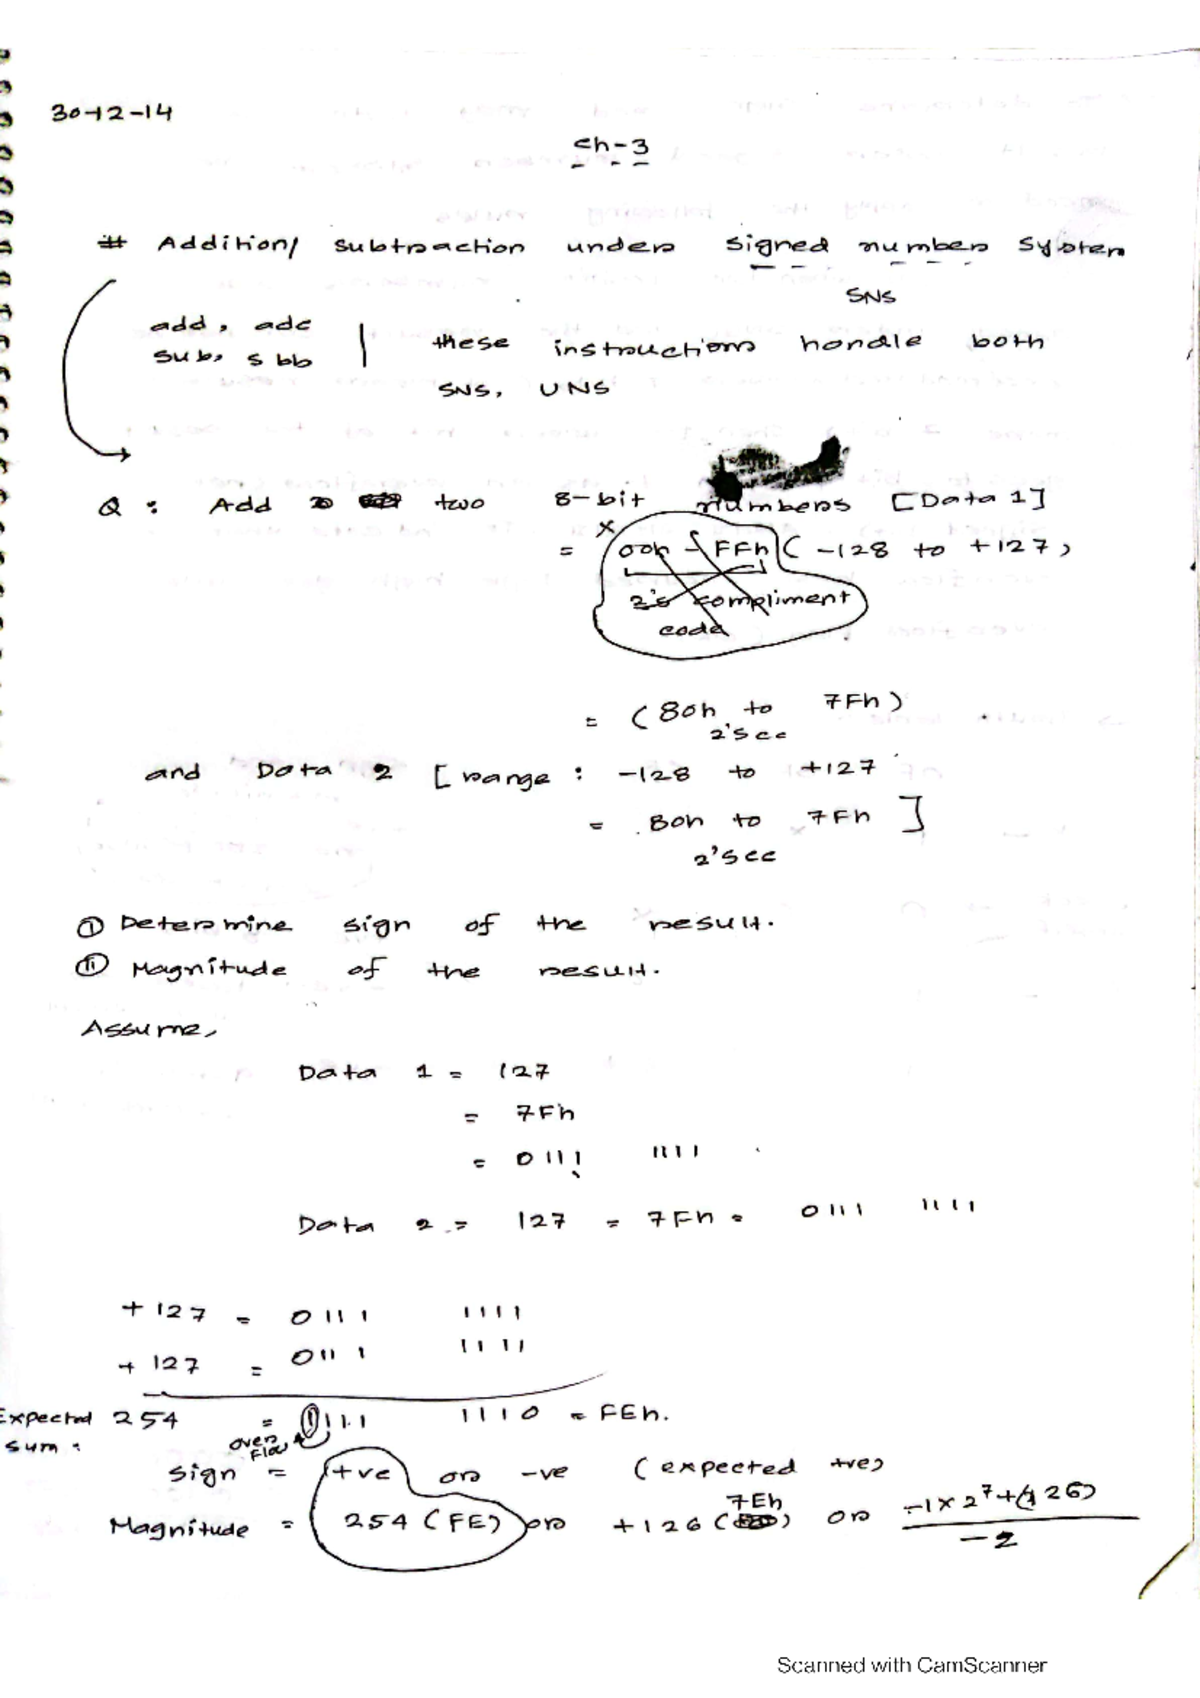 30-12-14
Ch-3
# Addition/ subtraction under signed number system
SNS
add, adc
sub, sbb | these instructions handle both
SNS, UNS
Q : Add two 8-bit numbers [Data 1]
= 00h - FFh ( -128 to +127,
2's compliment
code
= ( 80h to 7Fh )
2's cc
and Data 2 [ range : -128 to +127
= 80h to 7Fh ]
2's cc
(i) Determine sign of the result.
(ii) Magnitude of the result.
Assume,
Data 1 = 127
= 7Fh
= 0111 1111
Data 2 = 127 = 7Fh = 0111 1111
+127 = 0111 1111
+127 = 0111 1111
Expected sum : 254 = 1111 1110 = FEh.
over flow
sign = +ve or -ve (expected +ve)
Magnitude = 254 (FE) or +126 (7Eh) or -1×2⁷+(126)
-2
Scanned with CamScanner